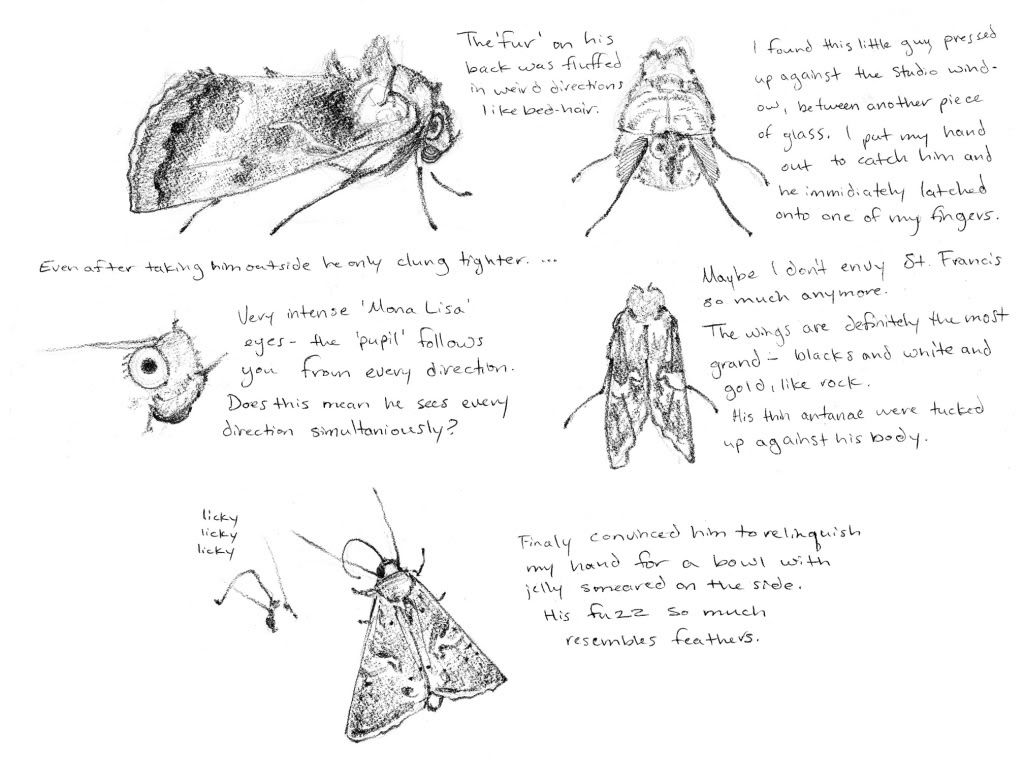 The 'fur' on his
back was fluffed
in weird directions
like bed-hair.
I found this little guy pressed
up against the studio wind-
ow, between another piece
of glass. I put my hand
out to catch him and
he immidiately latched
onto one of my fingers.
Even after taking him outside he only clung tighter. ...
Very intense 'Mona Lisa'
eyes - the 'pupil' follows
you from every direction.
Does this mean he sees every
direction simultaniously?
Maybe I don't envy St. Francis
so much anymore.
The wings are definitely the most
grand - blacks and white and
gold, like rock.
His thin antanae were tucked
up against his body.
licky
licky
licky
Finaly convinced him to relinquish
my hand for a bowl with
jelly smeared on the side.
His fuzz so much
resembles feathers.